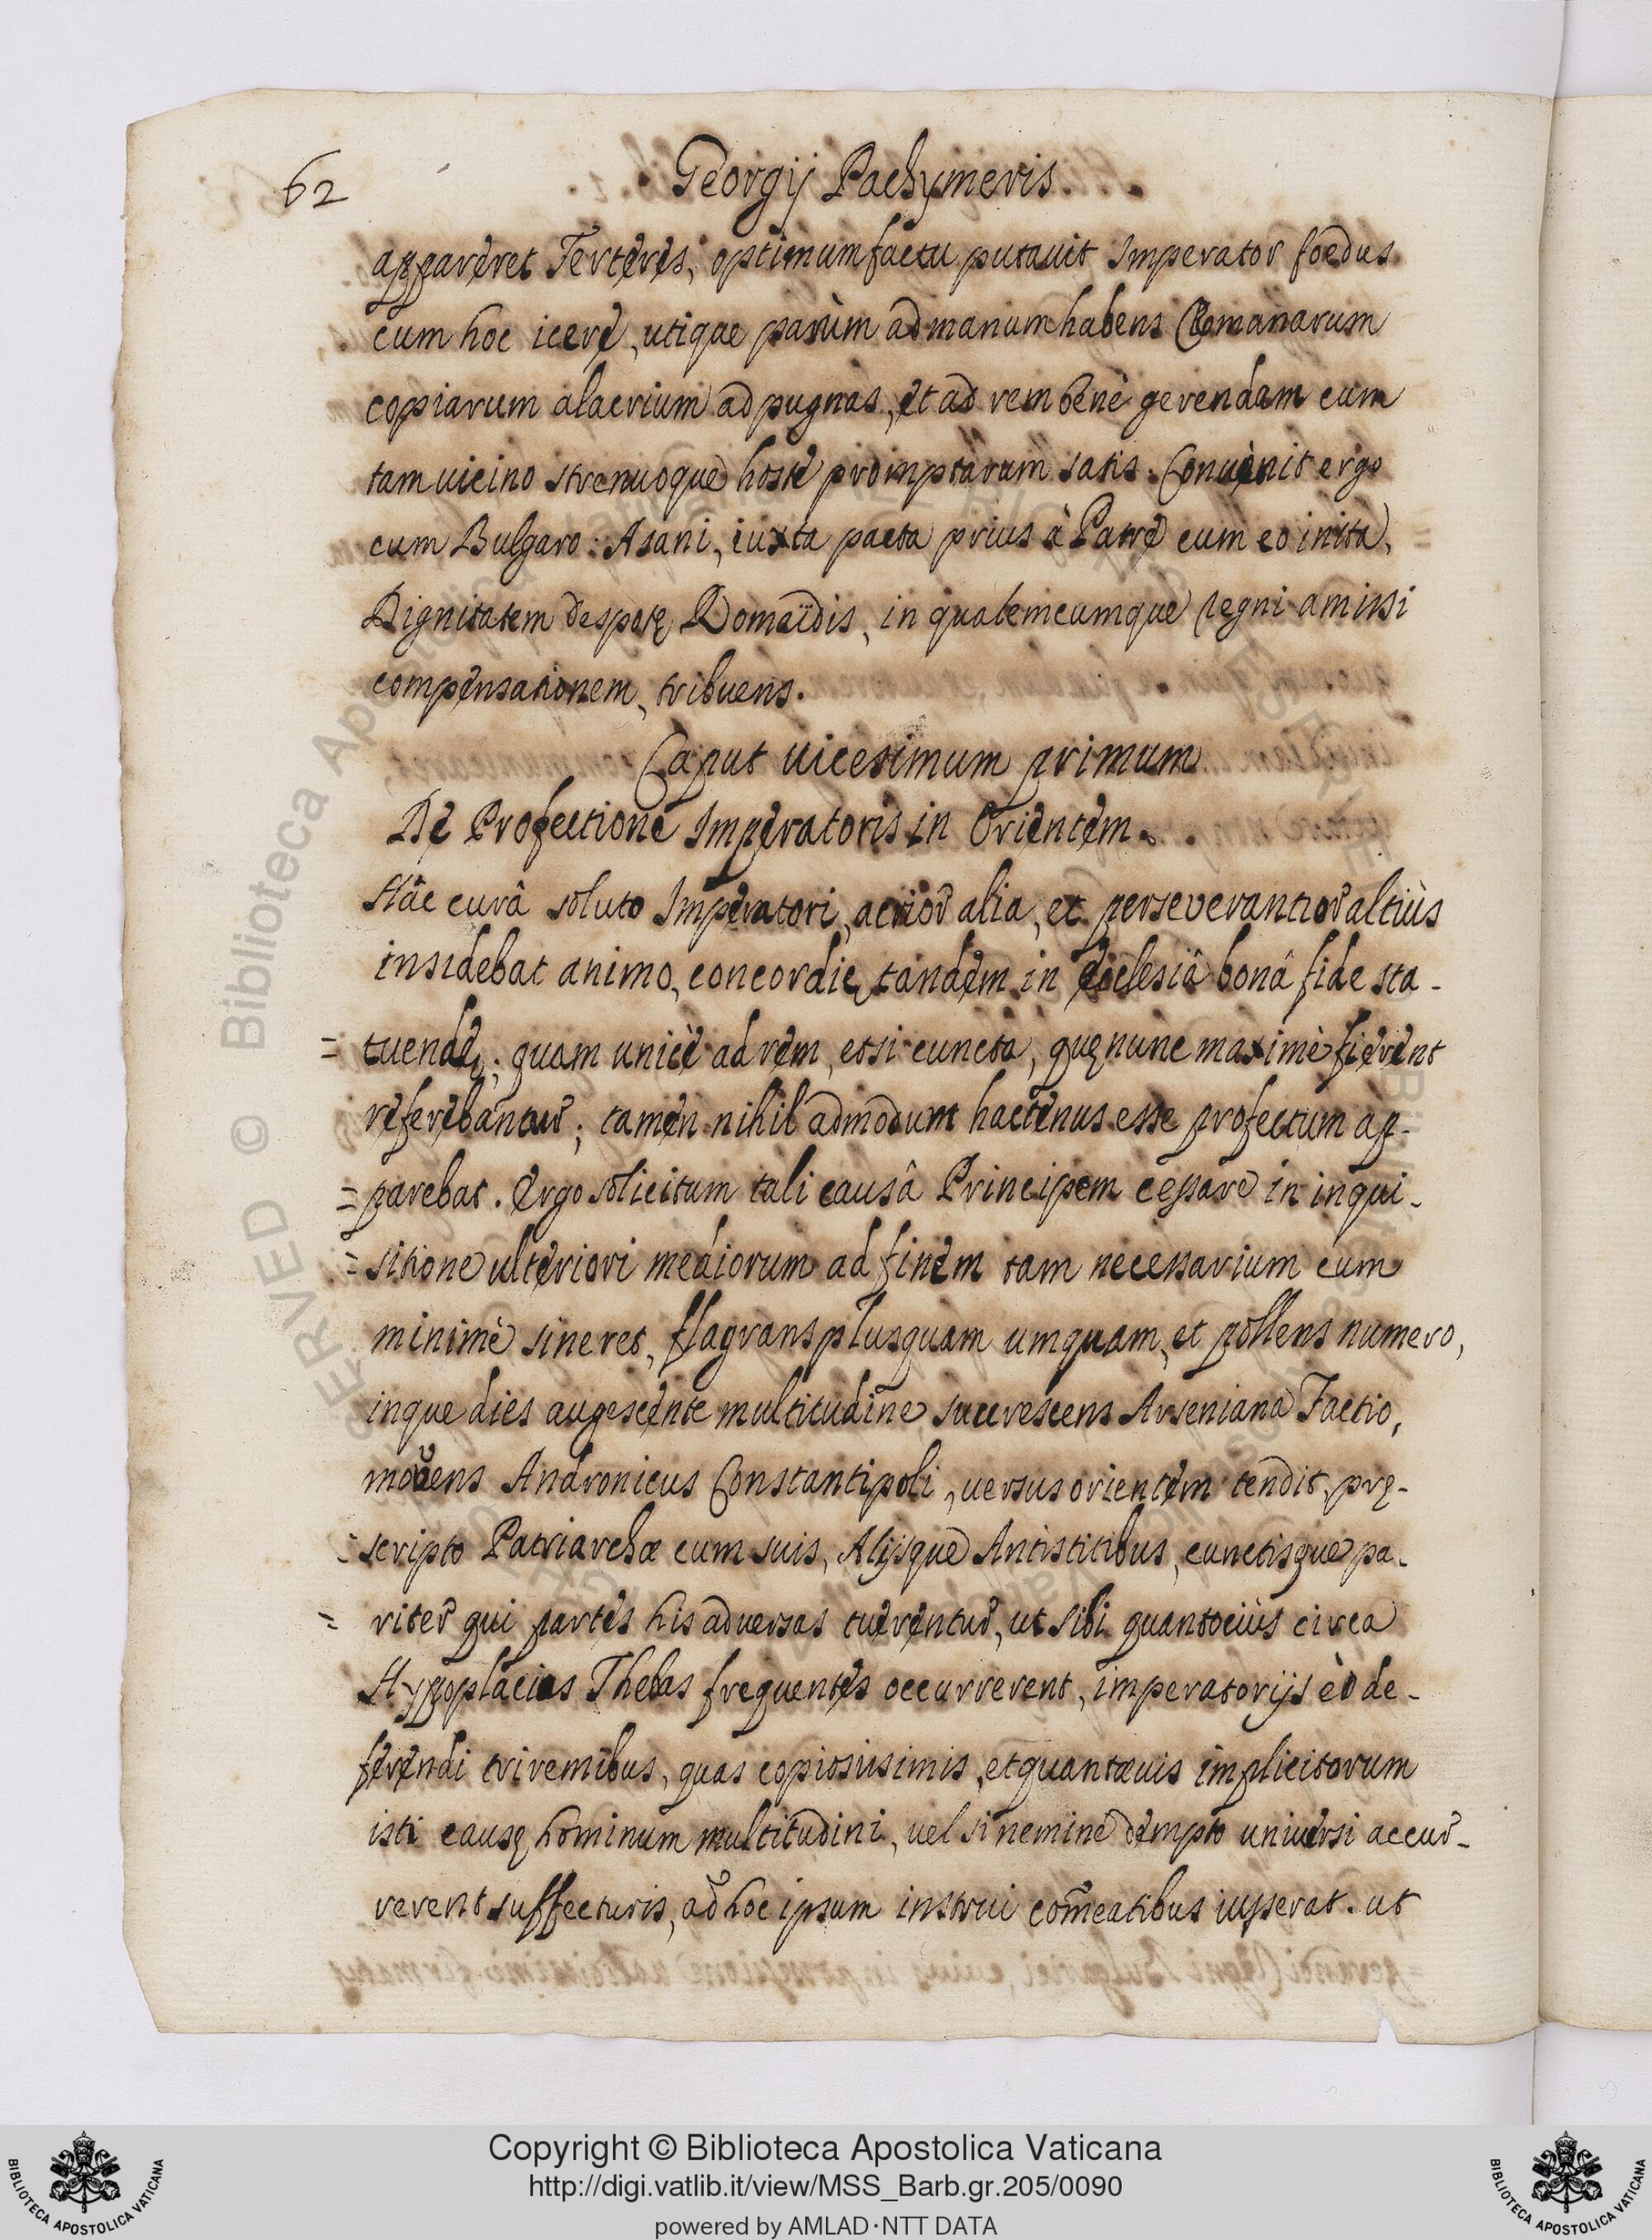 62
Georgij Pachymeris.
appareret Terteres, optimum factu putauit Imperator foedus
cum hoc icere, utique parùm ad manum habens Romanarum
copiarum alacrium ad pugnas, et ad rem benè gerendam cum
tam uicino strenuoque hoste promptarum satis. Conuenit ergo
cum Bulgaro: Asani, iuxta pacta prius à Patre cum eo inita,
Dignitatem despotę Romaïdis, in qualemcumque regni amissi
compensationem, tribuens.
Caput uicesimum primum
De Profectione Imperatoris in Orientem.
Hâc curâ soluto Imperatori, acrior alia, et perseverantior altiùs
insidebat animo, concordię tandem in Ecclesiâ bonâ fide sta-
=tuendę; quam unicè ad rem, etsi cuncta, quę nunc maximè fierent
referebantur; tamen nihil admodum hactenus esse profectum ap-
=parebat. Ergo solicitum tali causâ Principem cessare in inqui-
=sitione ulteriori mediorum ad finem tam necessarium cum
minimè sineret, flagrans plusquam umquam, et pollens numero,
inque dies augescente multitudine succrescens Arseniana Factio,
mouens Andronicus Constantipoli, uersus orientem tendit, prę-
=scripto Patriarchæ cum suis, Alijsque Antistitibus, cunctisque pa-
=riter qui partes his aduersas tuerentur, ut sibi quantociùs circa
Hypoplacias Thebas frequentes occurrerent, imperatorijs eò de-
ferendi triremibus, quas copiosissimis, et quantæuis implicitorum
isti causę hominum multitudini, uel si nemine dempto uniuersi accur-
rerent suffecturis, ad hoc ipsum instrui com̃eatibus iusserat. ut
Copyright © Biblioteca Apostolica Vaticana
http://digi.vatlib.it/view/MSS_Barb.gr.205/0090
powered by AMLAD·NTT DATA
BIBLIOTECA APOSTOLICA VATICANA
BIBLIOTECA APOSTOLICA VATICANA